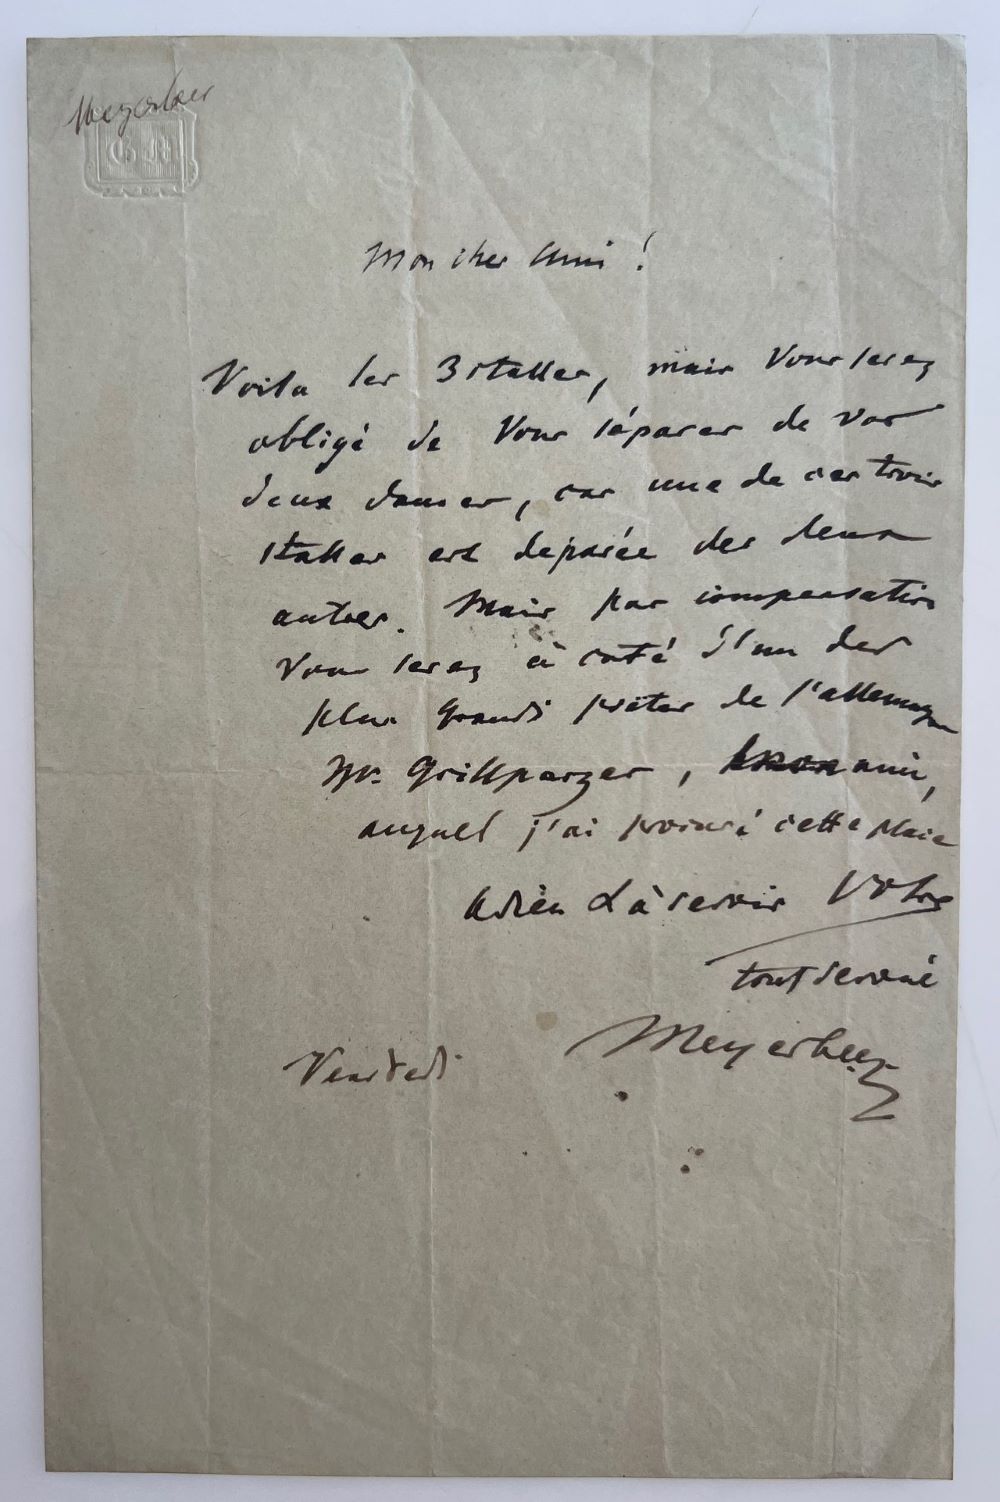 Meyerbeer
GM
Mon cher Ami !
Voila les 3 stalles, mais Vous serez
obligé de Vous séparer de vos
deux dames, car une de ces trois
stalles est separée des deux
autres. Mais par compensation
Vous serez à coté d'un des
plus grands poètes de l'allemagne
Mr. Grillparzer, ami,
auquel j'ai procuré cette place
Adieu & à revoir Votre
tout devoué
Meyerbeer
Vendredi